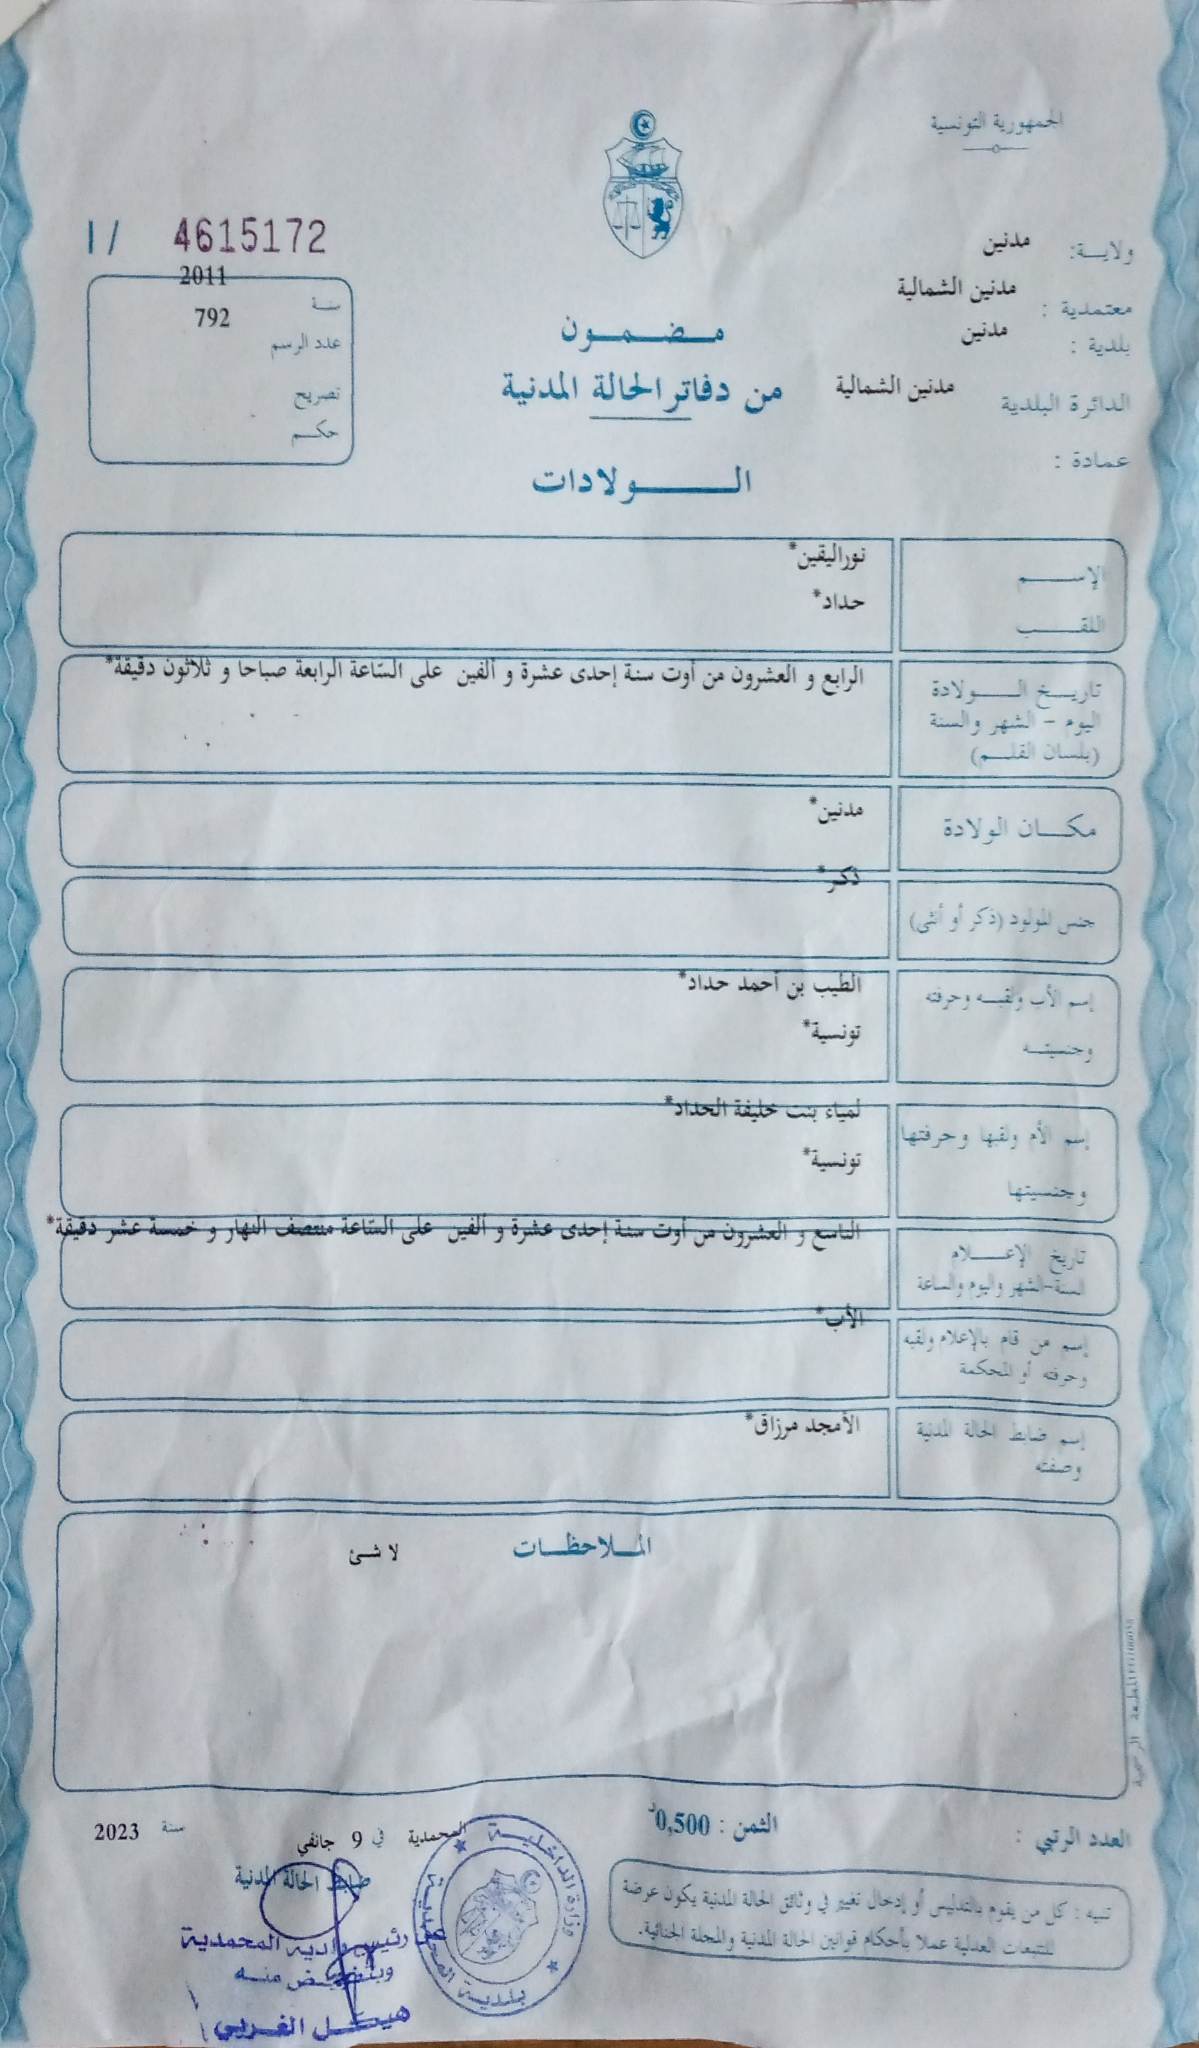 الجمهورية التونسية
ولايـــة: مدنين
معتمدية : مدنين الشمالية
بلدية : مدنين
الدائرة البلدية مدنين الشمالية
عمادة :
I / 4615172
سنة 2011
عدد الرسم 792
تصريح
حكم
مـضـمـون
من دفاتر الحالة المدنية
الـــولادات
الإســم نوراليقين*
اللقــب حداد*
تاريـخ الــولادة الرابع و العشرون من أوت سنة إحدى عشرة و ألفين على الساعة الرابعة صباحا و ثلاثون دقيقة*
اليوم - الشهر والسنة
(بلسان القلـم)
مكـان الولادة مدنين*
جنس المولود (ذكر أو أنثى) ذكر*
إسم الأب ولقبـه وحرفته الطيب بن أحمد حداد*
وجنسيتـه تونسية*
إسم الأم ولقبها وحرفتها لمياء بنت خليفة الحداد*
وجنسيتها تونسية*
تاريخ الإعـلام التاسع و العشرون من أوت سنة إحدى عشرة و ألفين على الساعة منتصف النهار و خمسة عشر دقيقة*
السنة-الشهر واليوم والساعة
إسم من قام بالإعلام ولقبه الأب*
وحرفته أو المحكمة
إسم ضابط الحالة المدنية الأمجد مرزاق*
وصفته
الملاحظـات
لا شئ
العدد الرتبي :
الثمن : 0,500د
المحمدية في 9 جانفي سنة 2023
ضابط الحالة المدنية
رئيس المحمدية
منه
هيكل الغربي
وزارة الداخلية
بلدية المحمدية
تنبيه : كل من يقوم بالتدليس أو إدخال تغيير في وثائق الحالة المدنية يكون عرضة
للتتبعات العدلية عملا بأحكام قوانين الحالة المدنية والمجلة الجنائية.
المطبعة الرسمية